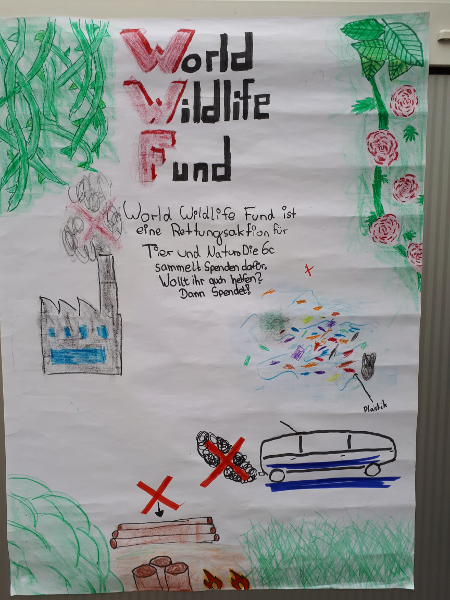 World
Wildlife
Fund
World Wildlife Fund ist
eine Rettungsaktion für
Tier und Natur. Die 6c
sammelt Spenden dafür.
Wollt ihr auch helfen?
Dann Spendet!
Plastik